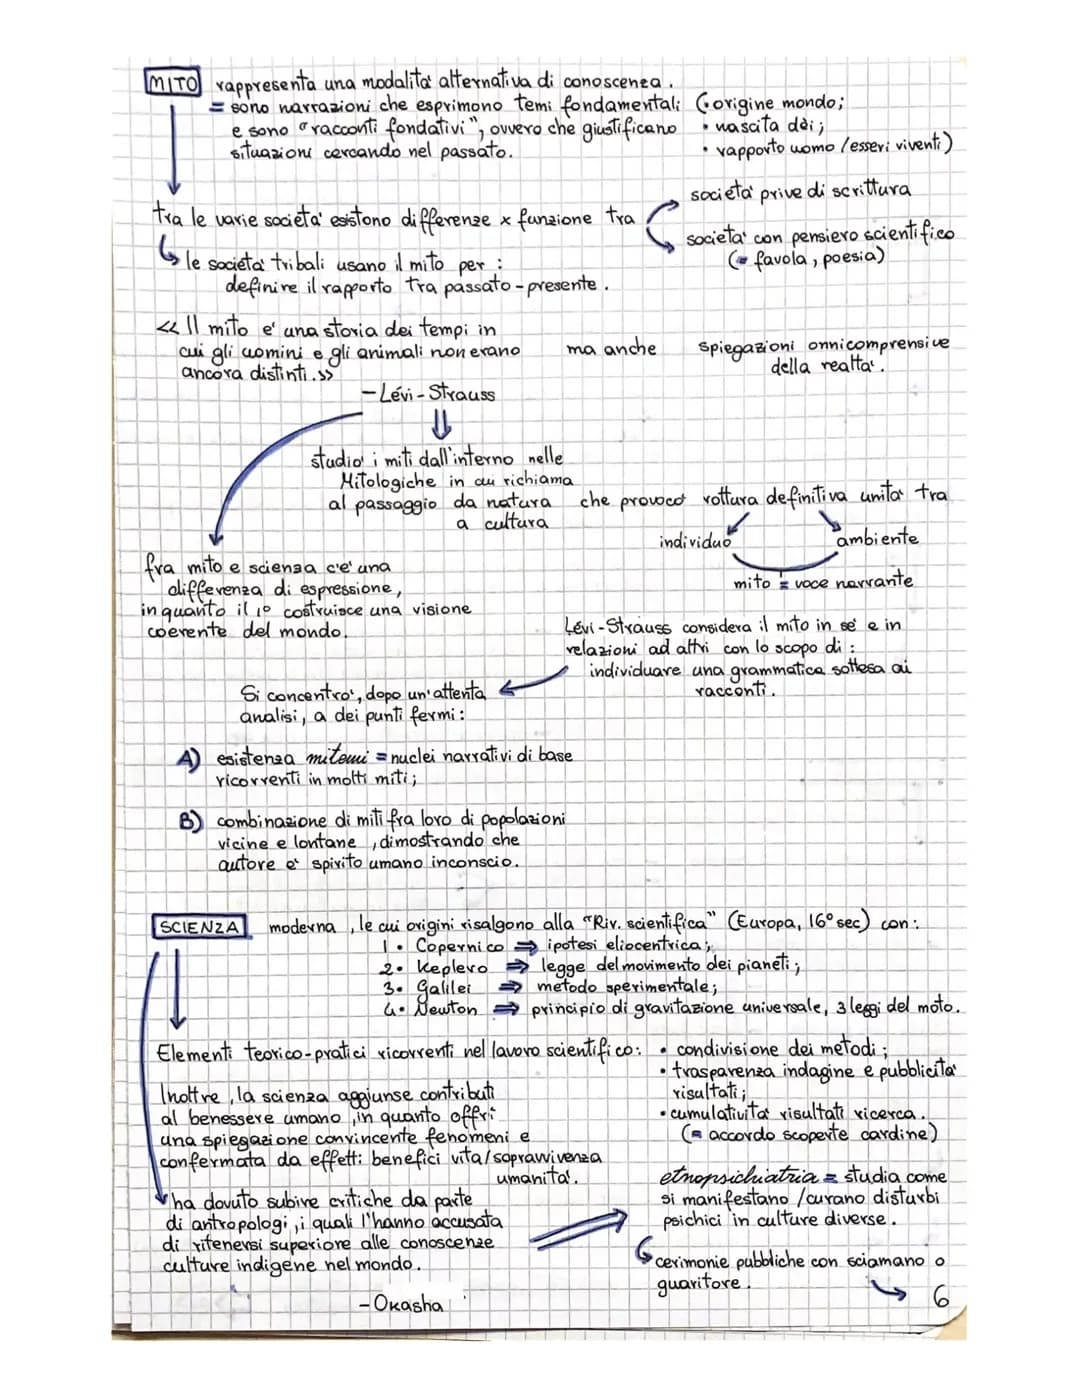 MITO rappresenta una modalità alternativa di conoscenza.
= sono narrazioni che esprimono temi fondamentali (• origine mondo;
e sono "racconti fondativi", ovvero che giustificano • nascita dèi;
situazioni cercando nel passato. • rapporto uomo/esseri viventi)
società prive di scrittura
tra le varie società esistono differenze x funzione tra
società con pensiero scientifico
(= favola, poesia)
le società tribali usano il mito per :
definire il rapporto tra passato-presente.
<< Il mito e' una storia dei tempi in
cui gli uomini e gli animali non erano ma anche spiegazioni onnicomprensive
ancora distinti.>> della realtà.
- Lévi-Strauss
studiò i miti dall'interno nelle
Mitologiche in cui richiama
al passaggio da natura che provocò rottura definitiva unità tra
a cultura
individuo ambiente
mito = voce narrante
fra mito e scienza c'e' una
differenza di espressione,
in quanto il 1° costruisce una visione
coerente del mondo.
Lévi-Strauss considera il mito in se' e in
relazioni ad altri con lo scopo di :
individuare una grammatica sottesa ai
racconti.
Si concentrò, dopo un'attenta
analisi, a dei punti fermi:
A) esistenza mitemi = nuclei narrativi di base
ricorrenti in molti miti;
B) combinazione di miti fra loro di popolazioni
vicine e lontane, dimostrando che
autore è spirito umano inconscio.
SCIENZA moderna, le cui origini risalgono alla "Riv. scientifica" (Europa, 16° sec) con:
1. Copernico ⇒ ipotesi eliocentrica;
2. Keplero ⇒ legge del movimento dei pianeti;
3. Galilei ⇒ metodo sperimentale;
4. Newton ⇒ principio di gravitazione universale, 3 leggi del moto.
Elementi teorico-pratici ricorrenti nel lavoro scientifico: • condivisione dei metodi;
• trasparenza indagine e pubblicità
risultati;
• cumulatività risultati ricerca.
(= accordo scoperte cardine)
Inoltre, la scienza aggiunse contributi
al benessere umano, in quanto offrì
una spiegazione convincente fenomeni e
confermata da effetti benefici vita/sopravvivenza
umanità.
ha dovuto subire critiche da parte
di antropologi, i quali l'hanno accusata
di ritenersi superiore alle conoscenze
culture indigene nel mondo.
- Okasha
etnopsichiatria = studia come
si manifestano /curano disturbi
psichici in culture diverse.
cerimonie pubbliche con sciamano o
guaritore.
6